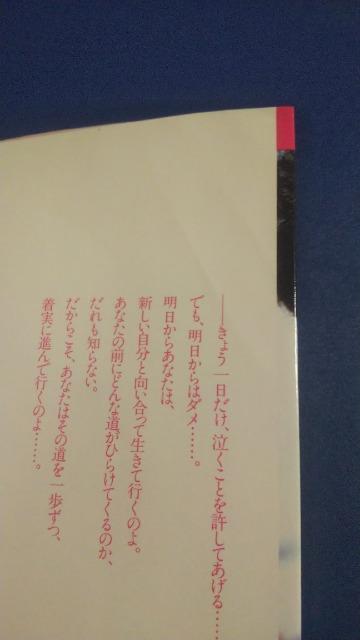 ――きょう一日だけ、泣くことを許してあげる……
でも、明日からはダメ……。
明日からあなたは、
新しい自分と向い合って生きて行くのよ。
あなたの前にどんな道がひらけてくるのか、
だれも知らない。
だからこそ、あなたはその道を一歩ずつ、
着実に進んで行くのよ……。